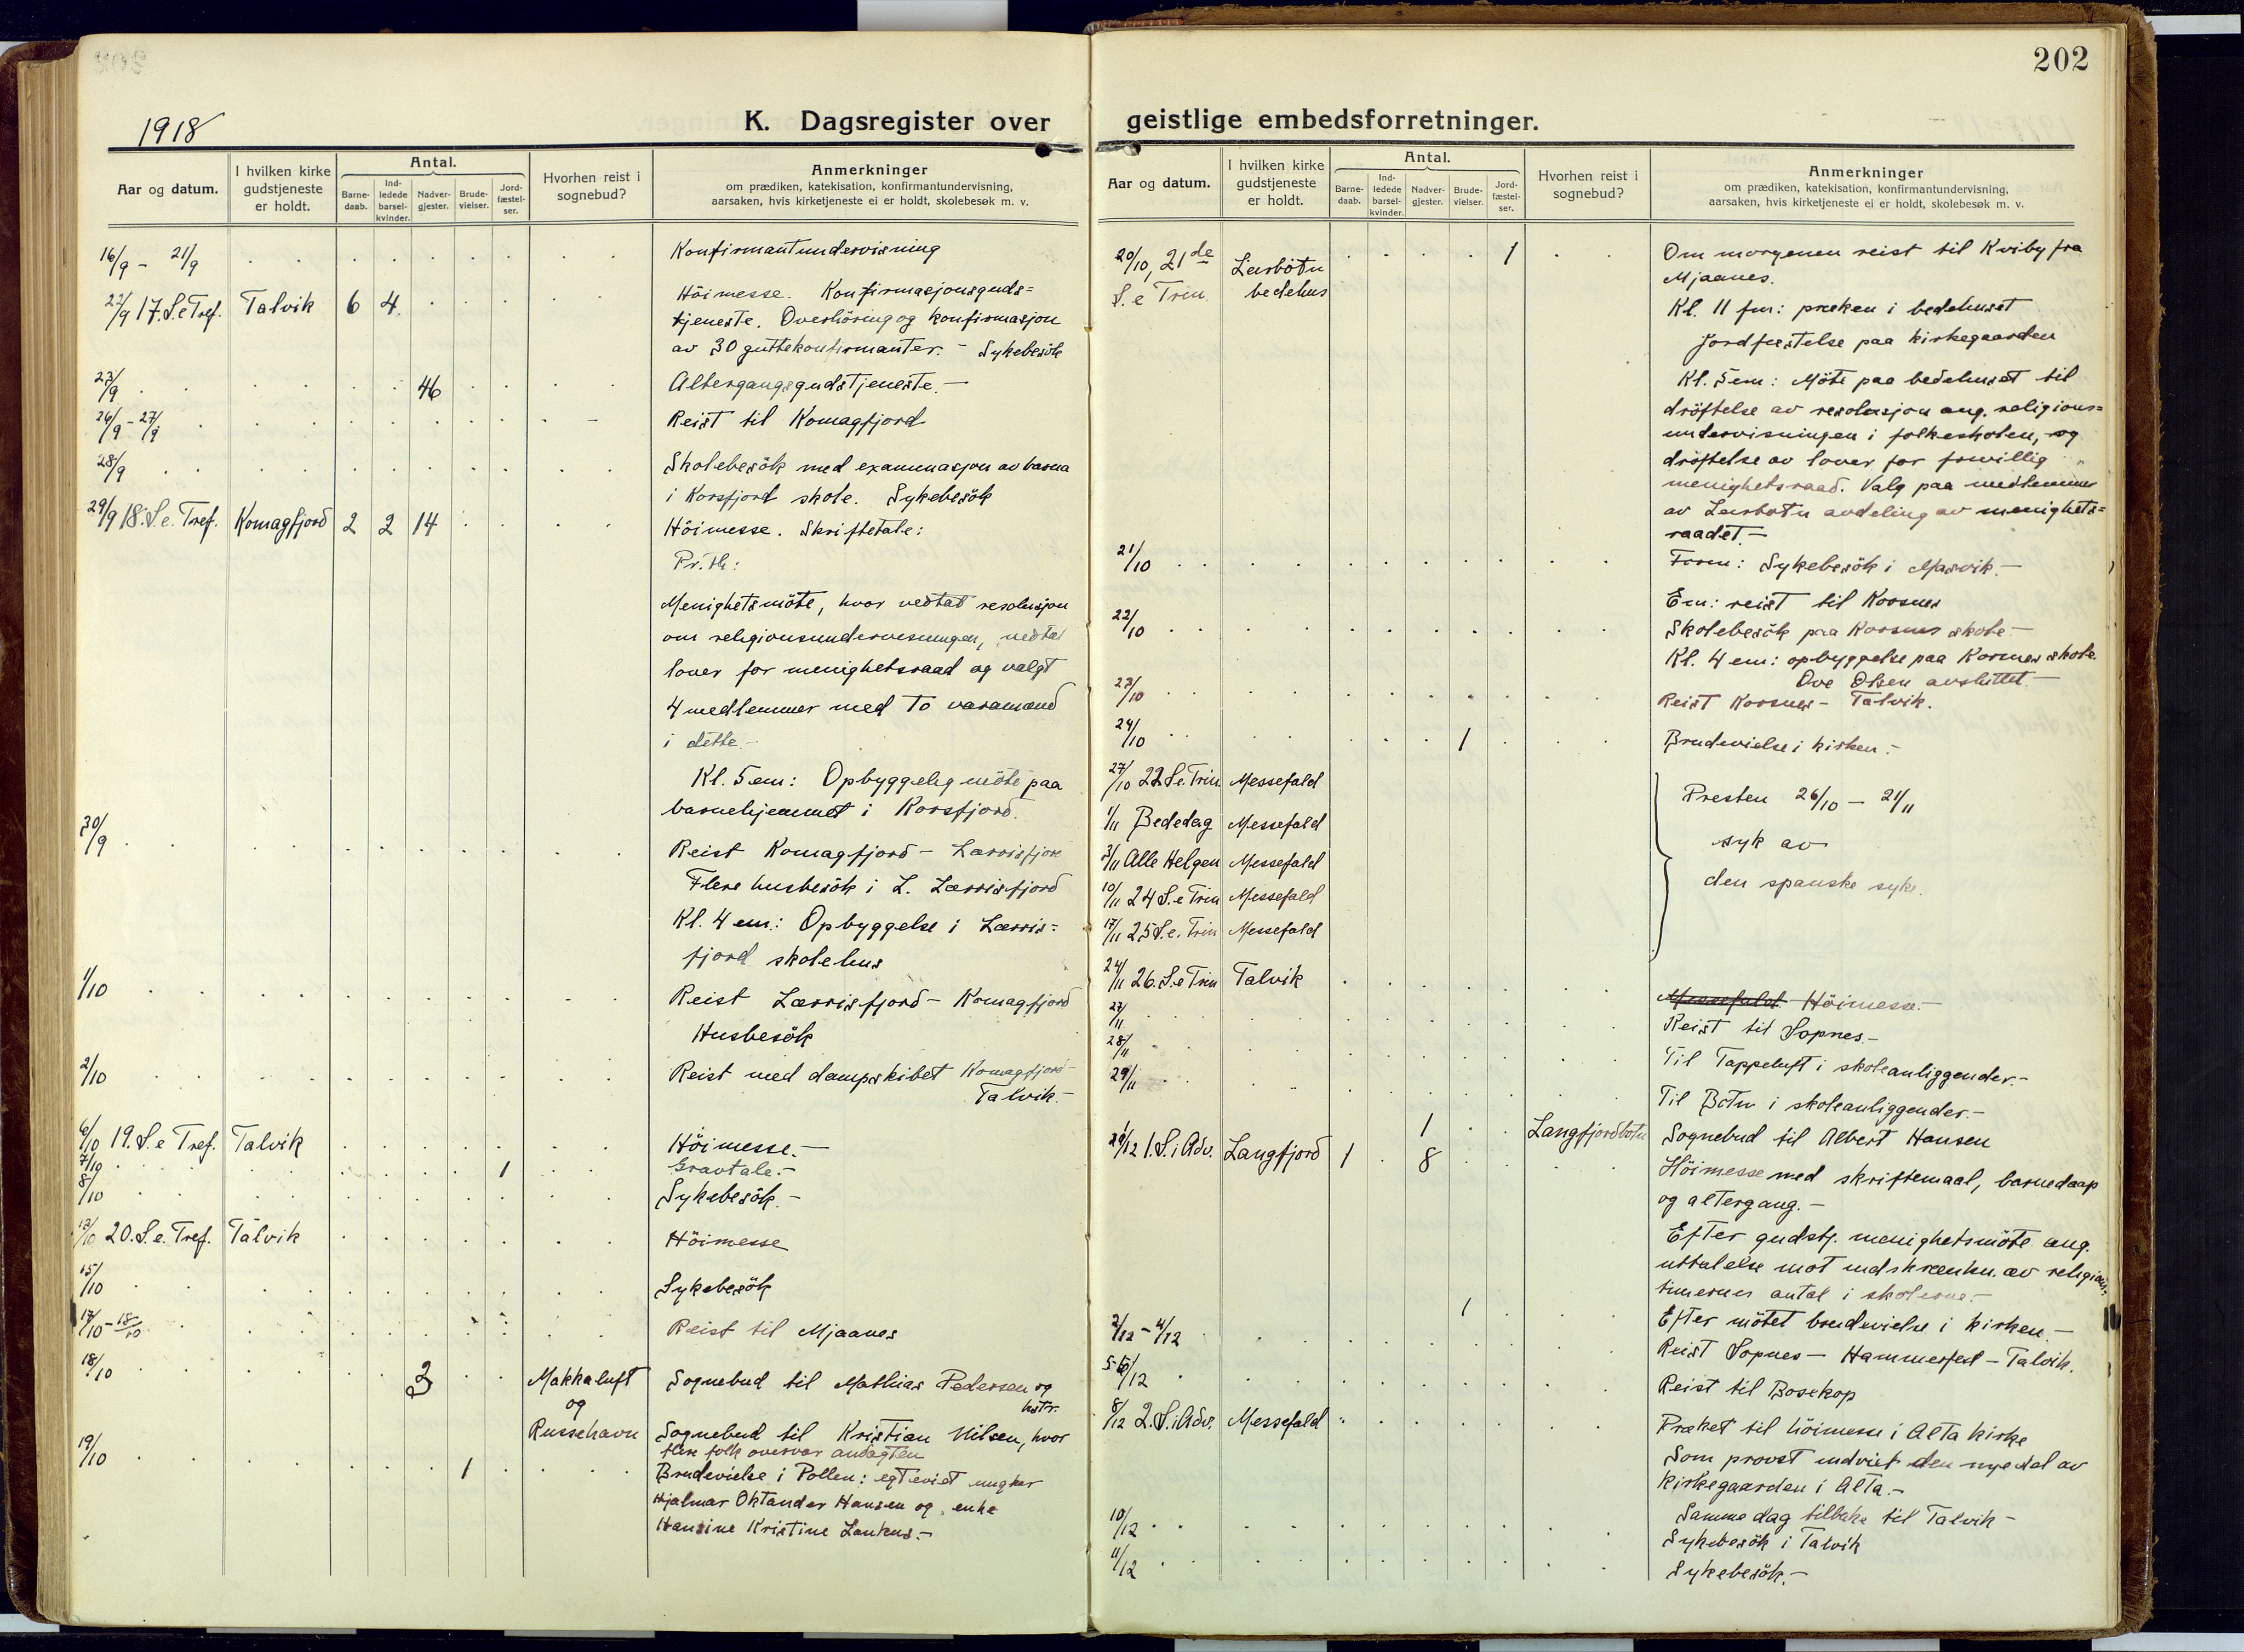 202
1918
K. Dagsregister over geistlige embedsforretninger.
Aar og datum.
I hvilken kirke gudstjeneste er holdt.
Antal.
Barne-daab.
Ind-ledede barsel-kvinder.
Nadver-gjester.
Brude-vielser.
Jord-fæstel-ser.
Hvorhen reist i sognebud?
Anmerkninger
om prædiken, katekisation, konfirmantundervisning,
aarsaken, hvis kirketjeneste ei er holdt, skolebesøk m. v.
16/9 - 21/9 Konfirmantundervisning
22/9 17. S. e Tref. Talvik 6 4 Höimesse. Konfirmasjonsguds=
tjeneste. Overhöring og konfirmasjon
av 30 guttekonfirmanter. - Sykebesök
23/9 46 Altergangsgudstjeneste. -
26/9 - 27/9 Reist til Komagfjord
28/9 Skolebesök med examinasjon av barna
i Korsfjord skole. Sykebesök
29/9 18. S. e. Tref. Komagfjord 2 2 14 Höimesse. Skriftetale:
Pr. th:
Menighetsmöte, hvor vedtat resolusjon
om religionsundervisningen, vedtat
lover for menighetsraad og valgt
4 medlemmer med to varamænd
i dette. -
Kl. 5 em: Opbyggelig möte paa
barnehjemmet i Korsfjord.
30/9 Reist Komagfjord - Lærrisfjord
Flere husbesök i L. Lærrisfjord
Kl. 4 em: Opbyggelse i Lærris=
fjord skolehus
1/10 Reist Lærrisfjord - Komagfjord
Husbesök
2/10 Reist med dampskibet Komagfjord -
Talvik. -
6/10 19. S. e Tref. Talvik Höimesse. -
7/10 1 Gravtale. -
8/10 Sykebesök. -
13/10 20. S. e. Tref. Talvik Höimesse
15/10 Sykebesök
17/10 - 18/10 Reist til Mjaanes
18/10 3 Makkaluft Sognebud til Mathias Pedersen og
og hstr.
Russehavn Sognebud til Kristian Nilsen, hvor
flere folk overvar andagten
19/10 1 Brudevielse i Pollen: egteviet ungkar
Hjalmar Oktander Hansen og enke
Hansine Kristine
Aar og datum.
I hvilken kirke gudstjeneste er holdt.
Antal.
Barne-daab.
Ind-ledede barsel-kvinder.
Nadver-gjester.
Brude-vielser.
Jord-fæstel-ser.
Hvorhen reist i sognebud?
Anmerkninger
om prædiken, katekisation, konfirmantundervisning,
aarsaken, hvis kirketjeneste ei er holdt, skolebesøk m. v.
20/10, 21de Leirbotn 1 Om morgenen reist til Kviby fra
S. e Trin. bedehus Mjaanes.
Kl. 11 fm: præken i bedehuset
Jordfæstelse paa kirkegaarden
Kl. 5 em: Möte paa bedehuset til
dröftelse av resolusjon ang. religions=
undervisningen i folkeskolen, og
dröftelse av lover for frivillig
menighetsraad. Valg paa medlemmer
av Leirbotn avdeling av menighets=
raadet. -
21/10 Form: Sykebesök i Masvik. -
Em: reist til Korsnes
22/10 Skolebesök paa Korsnes skole. -
Kl. 4 em: opbyggelse paa Korsnes skole.
Ove Olsen avsluttet. -
23/10 Reist Korsnes - Talvik.
24/10 1 Brudevielse i kirken. -
27/10 22 S. e. Trin. Messefald
1/11 Bededag Messefald
3/11 Alle Helgen Messefald
10/11 24 S. e Trin Messefald
17/11 25 S. e. Trin Messefald
Presten 26/10 - 21/11
syk av
den spanske syke.
24/11 26. S. e Trin Talvik Messefald Höimesse. -
27/11 Reist til Sopnes. -
28/11 Til Tappeluft i skoleanliggender. -
29/11 Til Botn i skoleanliggender. -
1 Langfjordbotn Sognebud til Albert Hansen
1/12 1. S. i Adv. Langfjord 1 8 Höimesse med skriftemaal, barnedaap
og altergang. -
Efter gudstj. menighetsmöte ang.
uttalelse mot indskrænkn. av religions-
timernes antal i skolerne. -
1 Efter mötet brudevielse i kirken. -
2/12 - 4/12 Reist Sopnes - Hammerfest - Talvik.
5-6/12 Reist til Bosekop
8/12 2. S. i Adv. Messefald Præket til höimesse i Alta kirke
Som provst indviet den nye del av
kirkegaarden i Alta. -
Samme dag tilbake til Talvik -
10/12 Sykebesök i Talvik
11/12 Sykebesök. -